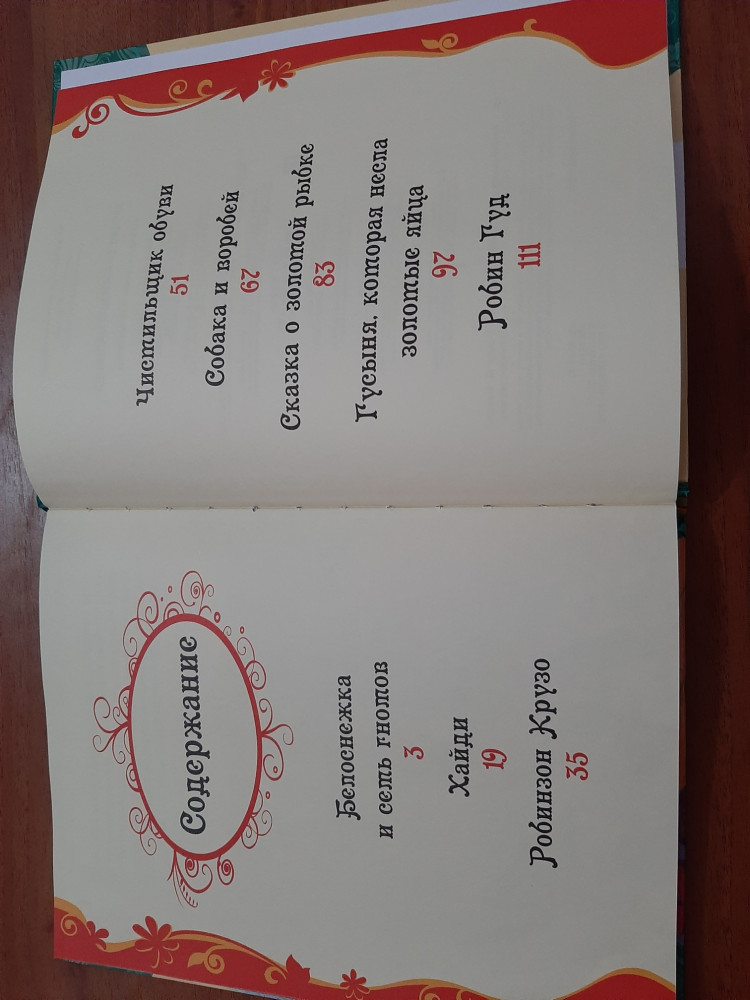 Содержание
Белоснежка
и семь гномов
3
Хайди
19
Робинзон Крузо
35
Чистильщик обуви
51
Собака и воробей
67
Сказка о золотой рыбке
83
Гусыня, которая несла
золотые яйца
97
Робин Гуд
111